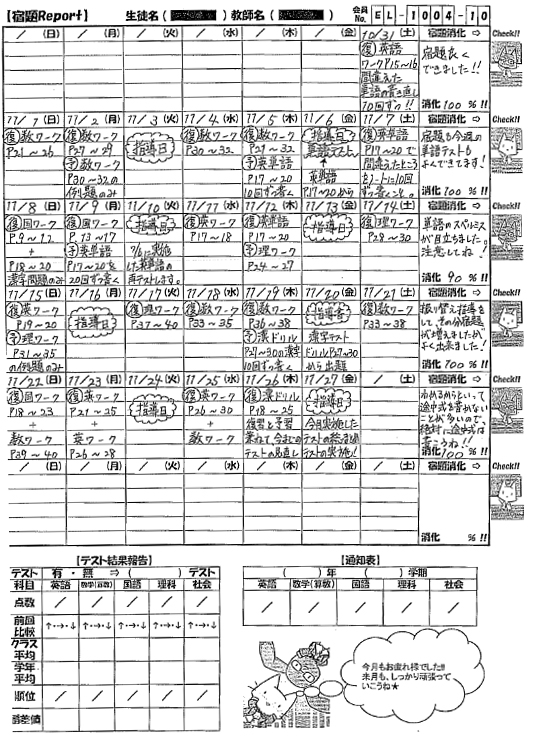 【宿題Report】 生徒名( )教師名( ) 会員No. EL-1004-10
/ (日) / (月) / (火) / (水) / (木) / (金) 10/31 (土) 宿題消化 ⇨ Check!!
復 英語
ワークP.15~16
間違えた
単語の書き直し
10回ずつ!!
宿題良く
できました!!
消化 100 % !!
11/1 (日) 11/2 (月) 11/3 (火) 11/4 (水) 11/5 (木) 11/6 (金) 11/7 (土) 宿題消化 ⇨ Check!!
復 数ワーク
P.21~26
復 数ワーク
P.27~29
予 数ワーク
P.30~32の
例題のみ
指導日
復 数ワーク
P.30~32
復 数ワーク
P.21~32
予 英単語
P.17~20
10回ずつ書く
指導日
単語テスト
↑
英単語
P.17~20から
復 英単語
P.17~20で
間違えたところ
をノートに10回
ずつ書くこと。
宿題も今週の
単語テストも
よくできてます!
消化 100 % !!
11/8 (日) 11/9 (月) 11/10 (火) 11/11 (水) 11/12 (木) 11/13 (金) 11/14 (土) 宿題消化 ⇨ Check!!
復 国ワーク
P.9~12
+
P.18~20
漢字問題のみ
復 国ワーク
P.13~17
予 英単語
P.17~20を
20回ずつ書く
指導日
11/6に実施
した英単語の
再テストします。
復 英ワーク
P.17~18
復 英単語
P.17~20
予 理ワーク
P.24~27
指導日
復 理ワーク
P.28~30
単語のスペルミス
が目立ちました。
注意してね!
消化 90 % !!
11/15 (日) 11/16 (月) 11/17 (火) 11/18 (水) 11/19 (木) 11/20 (金) 11/21 (土) 宿題消化 ⇨ Check!!
復 英ワーク
P.19~20
予 理ワーク
P.31~35
の例題のみ
指導日
復 理ワーク
P.37~40
復 数ワーク
P.33~35
復 数ワーク
P.36~38
予 漢ドリル
P.27~30の漢字
10回ずつ書く
指導日
漢字テスト
ドリルP.27~30
から出題
復 数ワーク
P.33~38
振り替え指導を
して、その分宿題
が増えましたが
よく出来ました!
消化 100 % !!
11/22 (日) 11/23 (月) 11/24 (火) 11/25 (水) 11/26 (木) 11/27 (金) / (土) 宿題消化 ⇨ Check!!
復 国ワーク
P.18~23
+
数ワーク
P.39~40
復 英ワーク
P.21~25
+
英ワーク
P.26~28
指導日
復 英ワーク
P.26~30
+
数ワーク
復 漢ドリル
P.18~25
復習と予習
兼ねて、今までの
テストの見直し
指導日
今月実施した
テストの総まとめ
テストの実施!
わかるからといって
途中式を書かない
ことが多いので、
絶対に途中式は
書こうね!!
消化 100 % !!
/ (日) / (月) / (火) / (水) / (木) / (金) / (土) 宿題消化 ⇨ Check!!
消化 % !!
【テスト結果報告】
テスト 有・無 ⇒ ( )テスト
科目 英語 数学(算数) 国語 理科 社会
点数 / / / / /
前回比較 ↑・→・↓ ↑・→・↓ ↑・→・↓ ↑・→・↓ ↑・→・↓
クラス平均
学年平均
順位 / / / / /
偏差値
【通知表】
( )年 ( )学期
英語 数学(算数) 国語 理科 社会
/ / / / /
今月もお疲れ様でした!!
来月も、しっかり頑張って
いこうね★